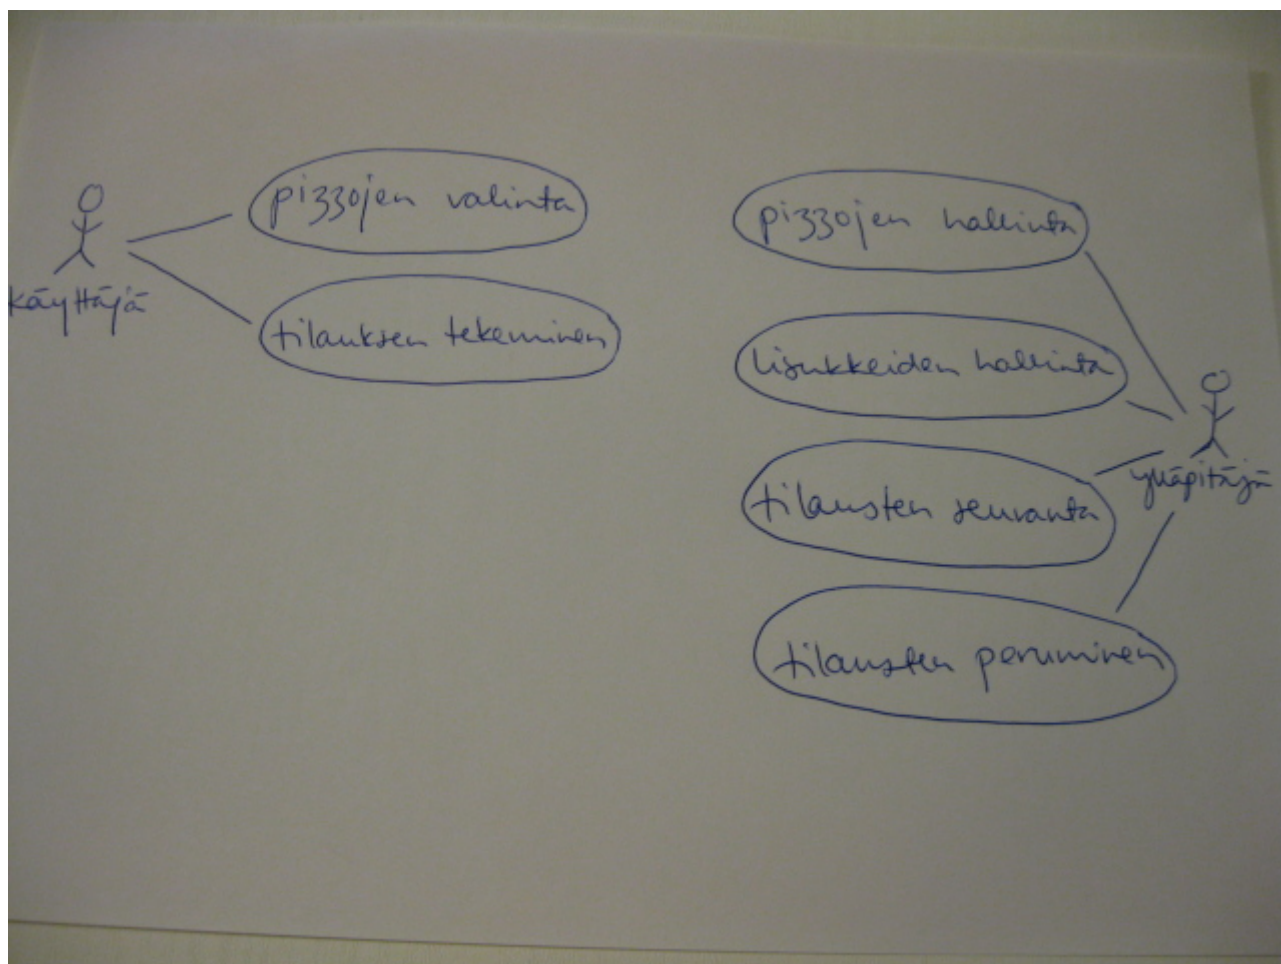 käyttäjä
pizzojen valinta
tilauksen tekeminen
pizzojen hallinta
lisukkeiden hallinta
tilausten seuranta
tilausten peruminen
ylläpitäjä